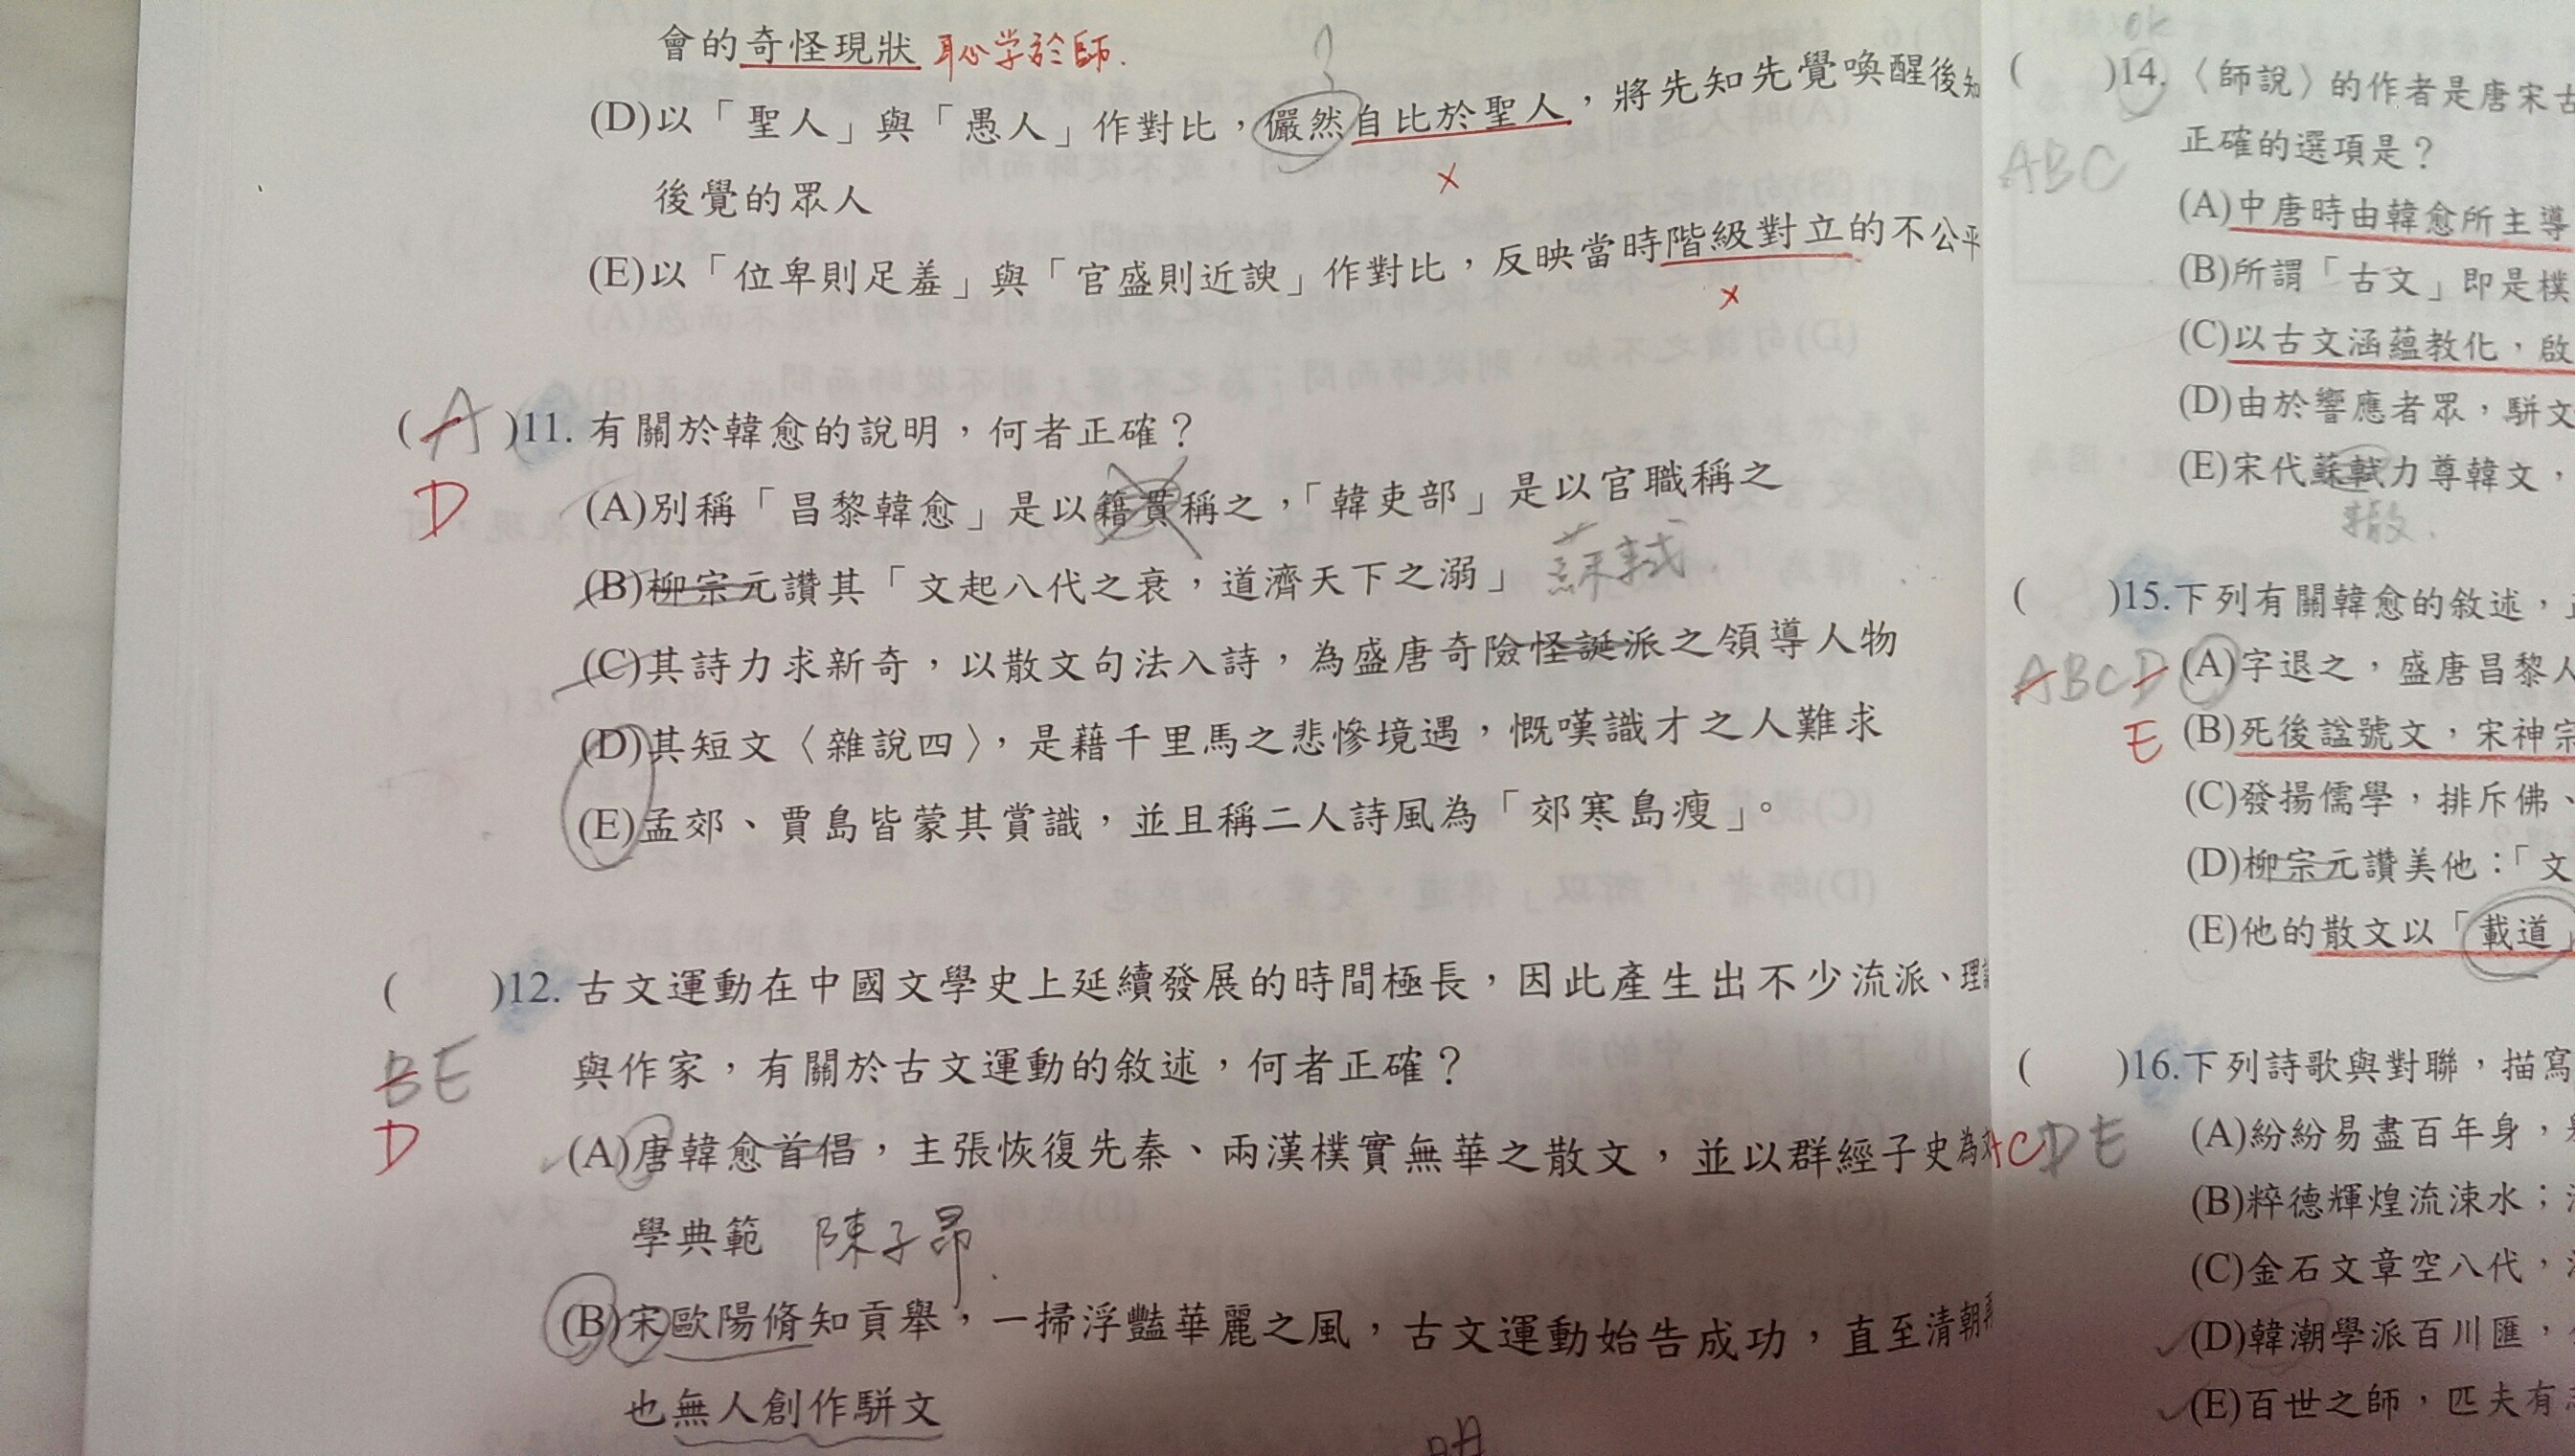 會的奇怪現狀 恥学於師.
(D)以「聖人」與「愚人」作對比，儼然自比於聖人，將先知先覺喚醒後知
?
×
後覺的眾人
(E)以「位卑則足羞」與「官盛則近諛」作對比，反映當時階級對立的不公平
×
(A)11. 有關於韓愈的說明，何者正確？
D
(A)別稱「昌黎韓愈」是以籍貫稱之，「韓吏部」是以官職稱之
(B)柳宗元讚其「文起八代之衰，道濟天下之溺」 蘇軾
(C)其詩力求新奇，以散文句法入詩，為盛唐奇險怪誕派之領導人物
(D)其短文〈雜說四〉，是藉千里馬之悲慘境遇，慨嘆識才之人難求
(E)孟郊、賈島皆蒙其賞識，並且稱二人詩風為「郊寒島瘦」。
( )12. 古文運動在中國文學史上延續發展的時間極長，因此產生出不少流派、理
與作家，有關於古文運動的敘述，何者正確？
BE
D
(A)唐韓愈首倡，主張恢復先秦、兩漢樸實無華之散文，並以群經子史為
學典範 陳子昂.
(B)宋歐陽脩知貢舉，一掃浮豔華麗之風，古文運動始告成功，直至清朝
也無人創作駢文
明
ok
( )14.〈師說〉的作者是唐宋古
ABC
正確的選項是？
(A)中唐時由韓愈所主導
(B)所謂「古文」即是樸
(C)以古文涵蘊教化，啟
(D)由於響應者眾，駢文
(E)宋代蘇軾力尊韓文，
轍.
( )15.下列有關韓愈的敘述，
ABCD
E
(A)字退之，盛唐昌黎人
(B)死後諡號文，宋神宗
(C)發揚儒學，排斥佛、
(D)柳宗元讚美他：「文
(E)他的散文以「載道」
( )16.下列詩歌與對聯，描寫
ACDE
(A)紛紛易盡百年身，
(B)粹德輝煌流涑水；
(C)金石文章空八代，
(D)韓潮學派百川匯，
(E)百世之師，匹夫有